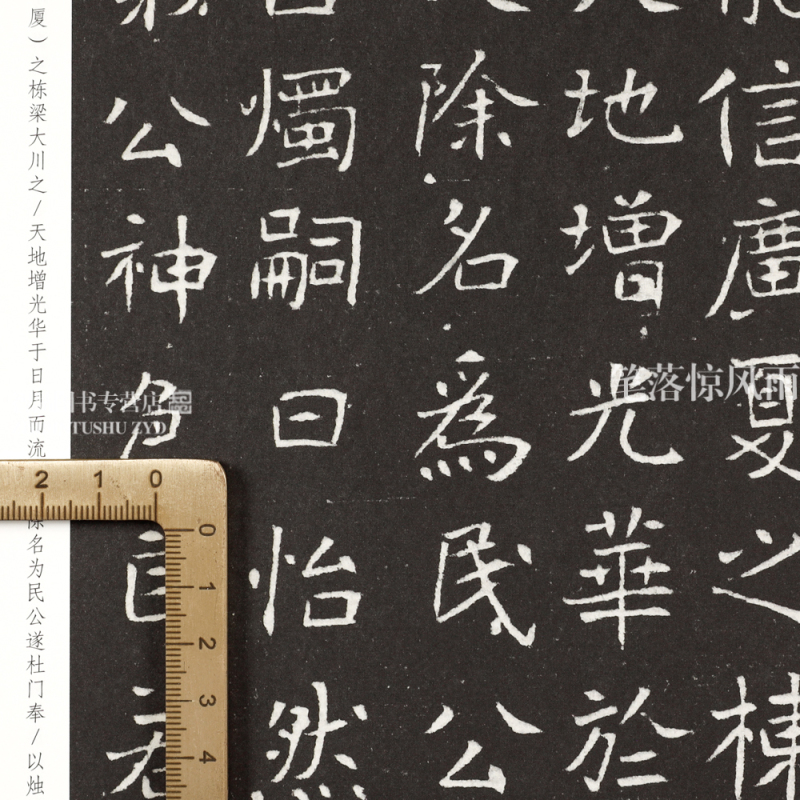 信廣夏之棟
地增光華於
除名為民公
燭嗣曰怡然
公神色自若
厦）之栋梁大川之/天地增光华于日月而流
除名为民公遂杜门奉/以烛
笔落惊风雨
图书专营店
TUSHU ZYD
2 1 0
0 1 2 3 4